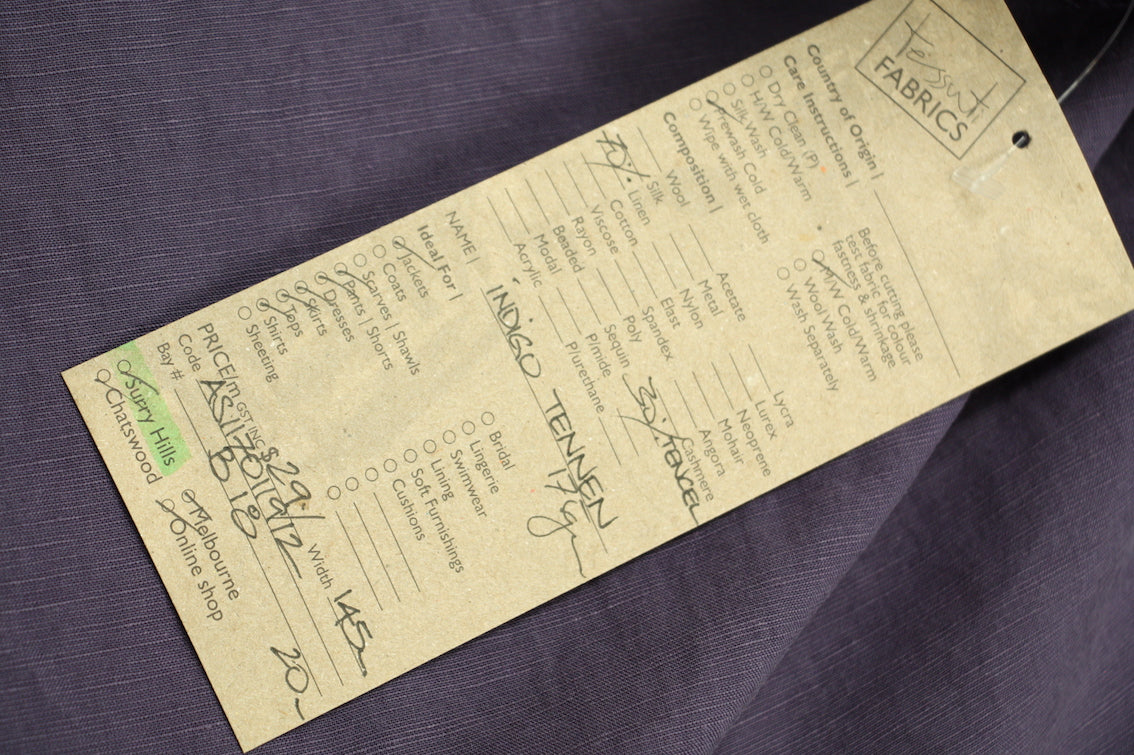 tessuti
FABRICS
Country of Origin |
Care Instructions |
Dry Clean (P)
H/W Cold/Warm
Silk Wash
Prewash Cold
Wipe with wet cloth
Before cutting please
test fabric for colour
fastness & shrinkage
H/W Cold/Warm
Wool Wash
Wash Separately
Composition |
Wool
Silk
70% Linen
Cotton
Viscose
Rayon
Beaded
Modal
Acrylic
Acetate
Metal
Nylon
Elast
Spandex
Poly
Sequin
P/mide
P/urethane
Lycra
Lurex
Neoprene
Mohair
Angora
Cashmere
30% TENCEL
NAME | INDIGO TENNEN
Ideal For |
Jackets
Coats
Scarves | Shawls
Pants | Shorts
Dresses
Skirts
Tops
Shirts
Sheeting
Bridal
Lingerie
Swimwear
Lining
Soft Furnishings
Cushions
PRICE/m GST INC $29 Width 145
Code
Bay # B
20
Surry Hills
Chatswood
Melbourne
Online shop